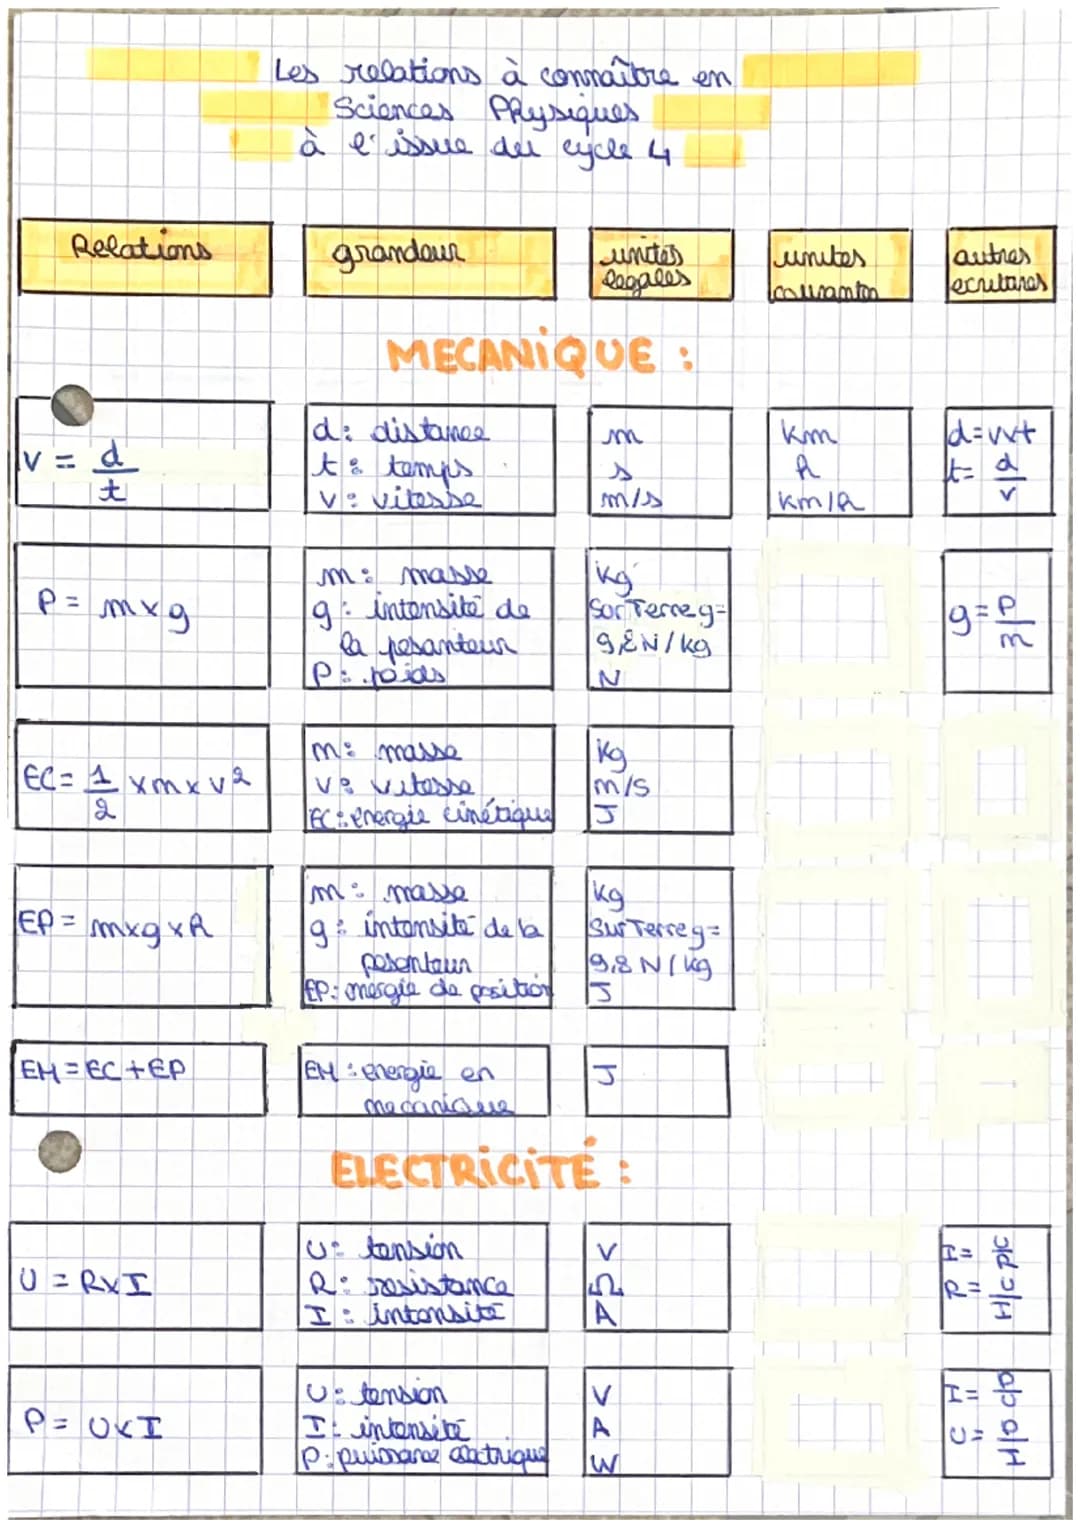 Les relations à connaître en
Sciences Physiques
à l'issue du cycle 4
Relations
grandeur
unités
legales
unites
courantes
autres
ecritures
MECANIQUE :
V = d
t
d: distance
t: temps
v: vitesse
m
s
m/s
km
h
km/h
d=vxt
t= d
v
P = mxg
m: masse
g: intensité de
la pesanteur
P: poids
kg
Sur Terre g=
9,8 N/kg
N
g= P
m
EC= 1 xmxv²
2
m: masse
v: vitesse
EC: énergie cinétique
kg
m/s
J
EP= mxgxh
m: masse
g: intensité de la
pesanteur
EP: énergie de position
kg
Sur Terre g=
9,8 N/kg
J
EM=EC+EP
EM: énergie en
mecanique
J
ELECTRICITÉ :
U = RxI
U: tension
R: resistance
I: intensité
V
Ω
A
I= U
R
R= U
I
P= UxI
U: tension
I: intensité
P: puissance electrique
V
A
W
I= P
U
U= P
I